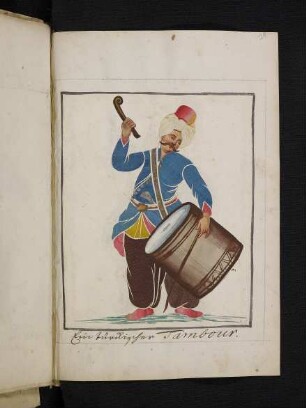 Ein türckischer Tambour.